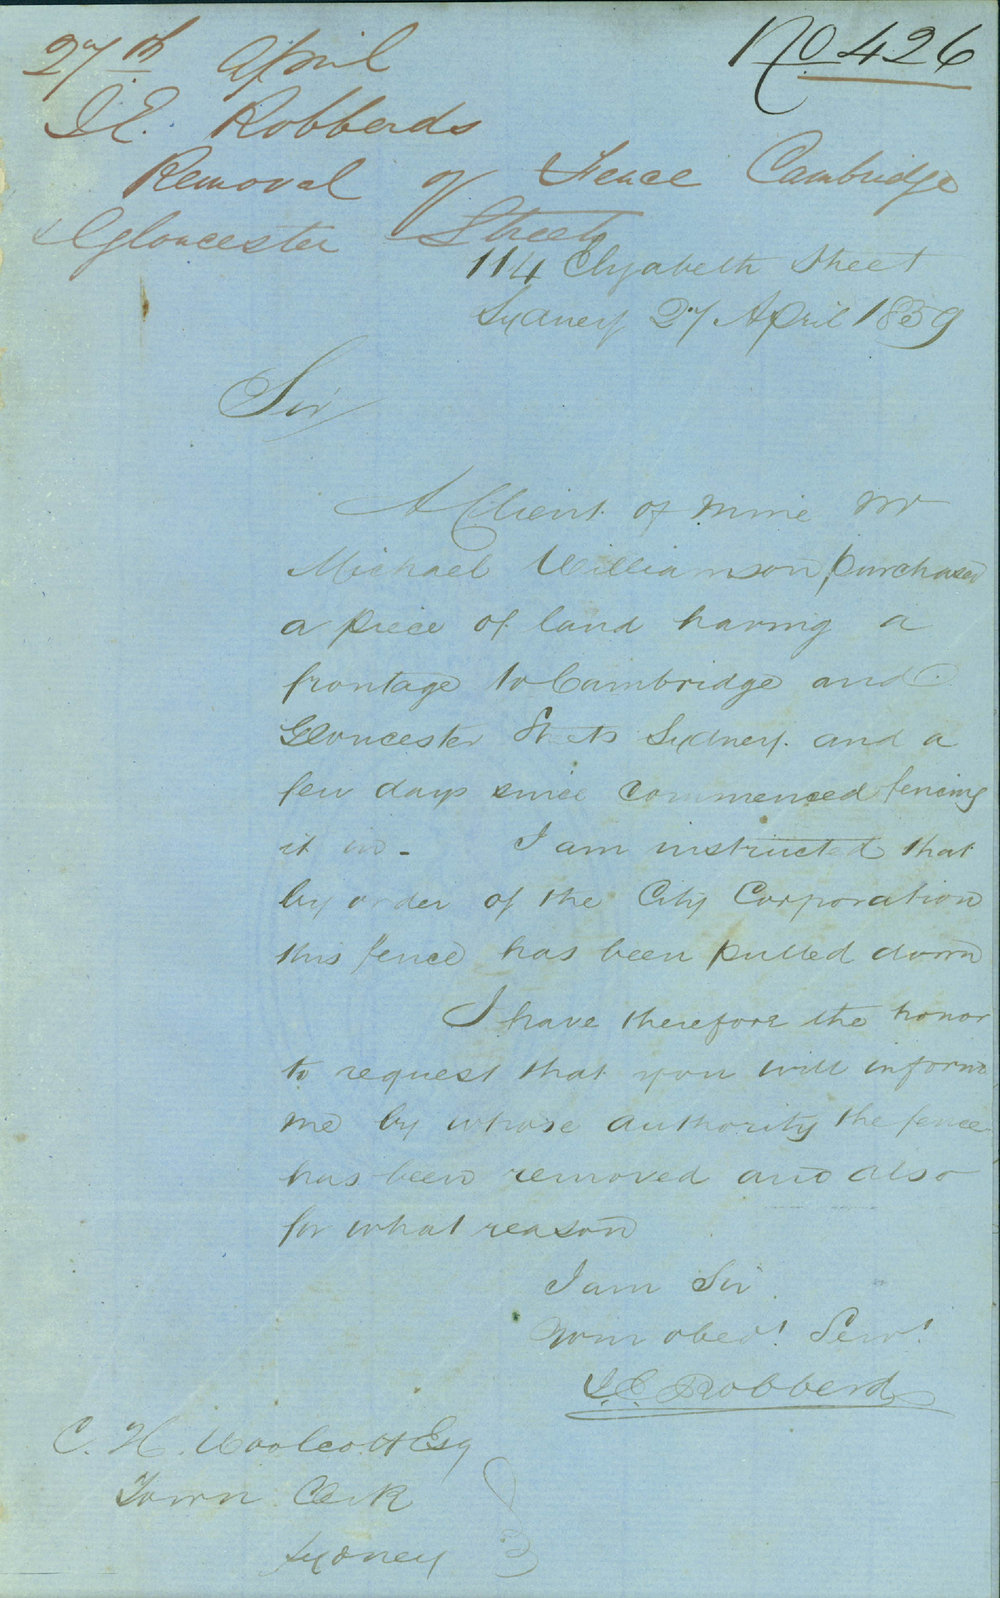 27th April
No 426
J E. Robberds
Removal of Fence Cambridge
& Gloucester Streets
114 Elizabeth Street
Sydney 27 April 1859
Sir
A Client of mine Mr
Michael Williamson purchased
a piece of land having a
frontage to Cambridge and
Gloucester Streets Sydney. and a
few days since commenced fencing
it in - I am instructed that
by order of the City Corporation
this fence has been pulled down
I have therefore the honor
to request that you will inform
me by whose authority the fence
has been removed and also
for what reason
I am Sir
Your obedt. Servt.
J. E. Robberds
C. H. Woolcott Esq
Town Clerk
Sydney